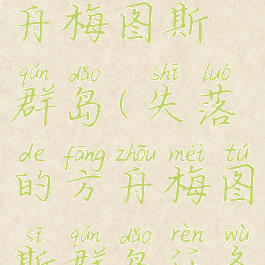 舟梅图斯
qún dǎo shī luò
群岛(失落
de fāng zhōu méi tú
的方舟梅图
sī qún dǎo rèn wù
斯群岛任务